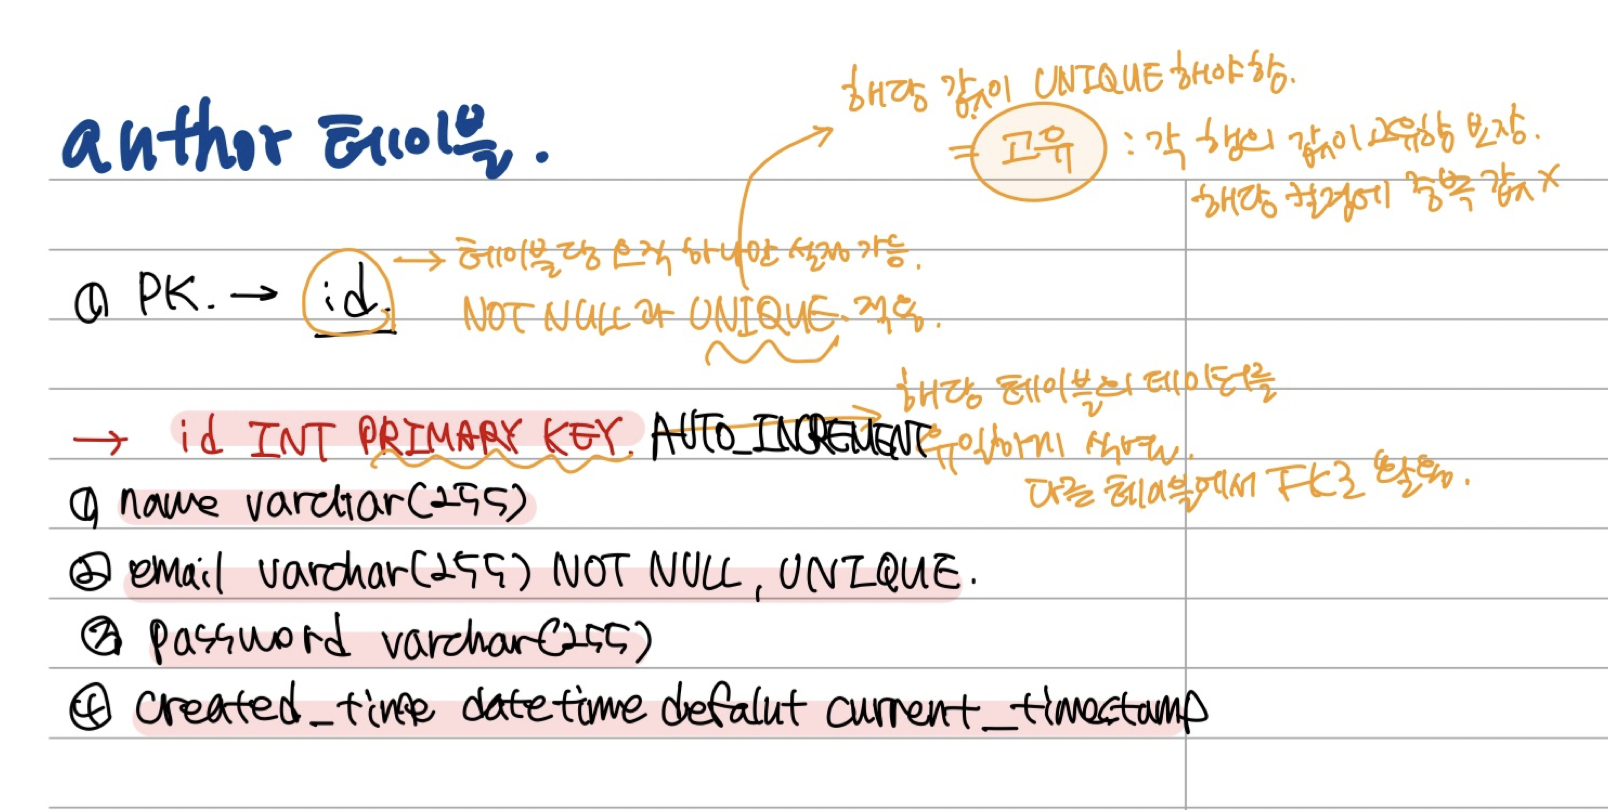 author 테이블.
해당 값이 UNIQUE해야함.
= 고유 : 각 행의 값이 고유함 보장.
해당 컬럼에 중복 값 X
① PK. → id.
→ 테이블당 오직 하나만 설정 가능.
NOT NULL과 UNIQUE. 적용.
→ id INT PRIMARY KEY. AUTO_INCREMENT
해당 테이블의 데이터를
유일하게 식별.
다른 테이블에서 FK로 활용.
① name varchar(255)
② email varchar(255) NOT NULL, UNIQUE.
③ password varchar(255)
④ created_time datetime defalut current_timestamp